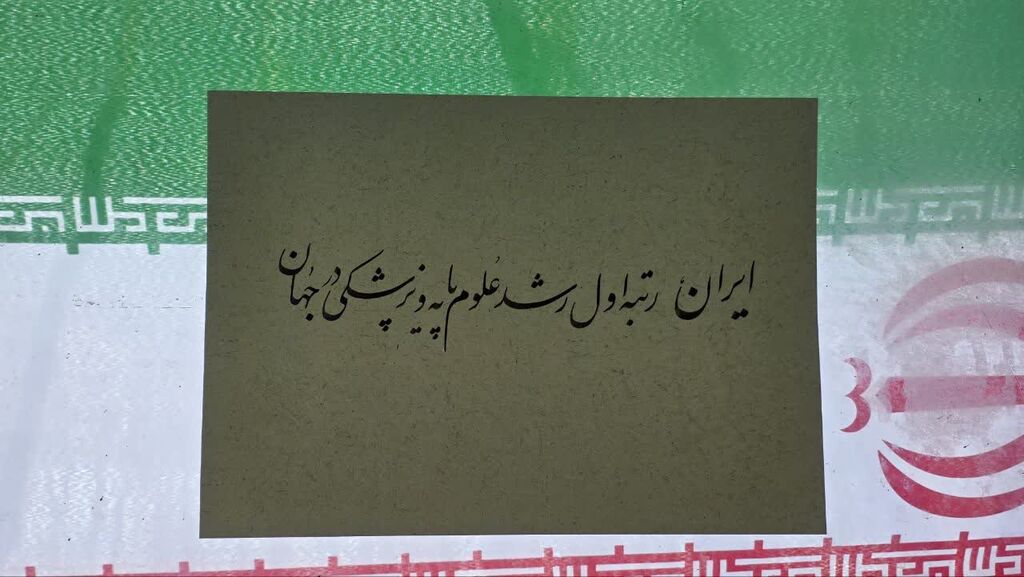 ایران رتبه اول رشد علوم پایه و پزشکی در جهان